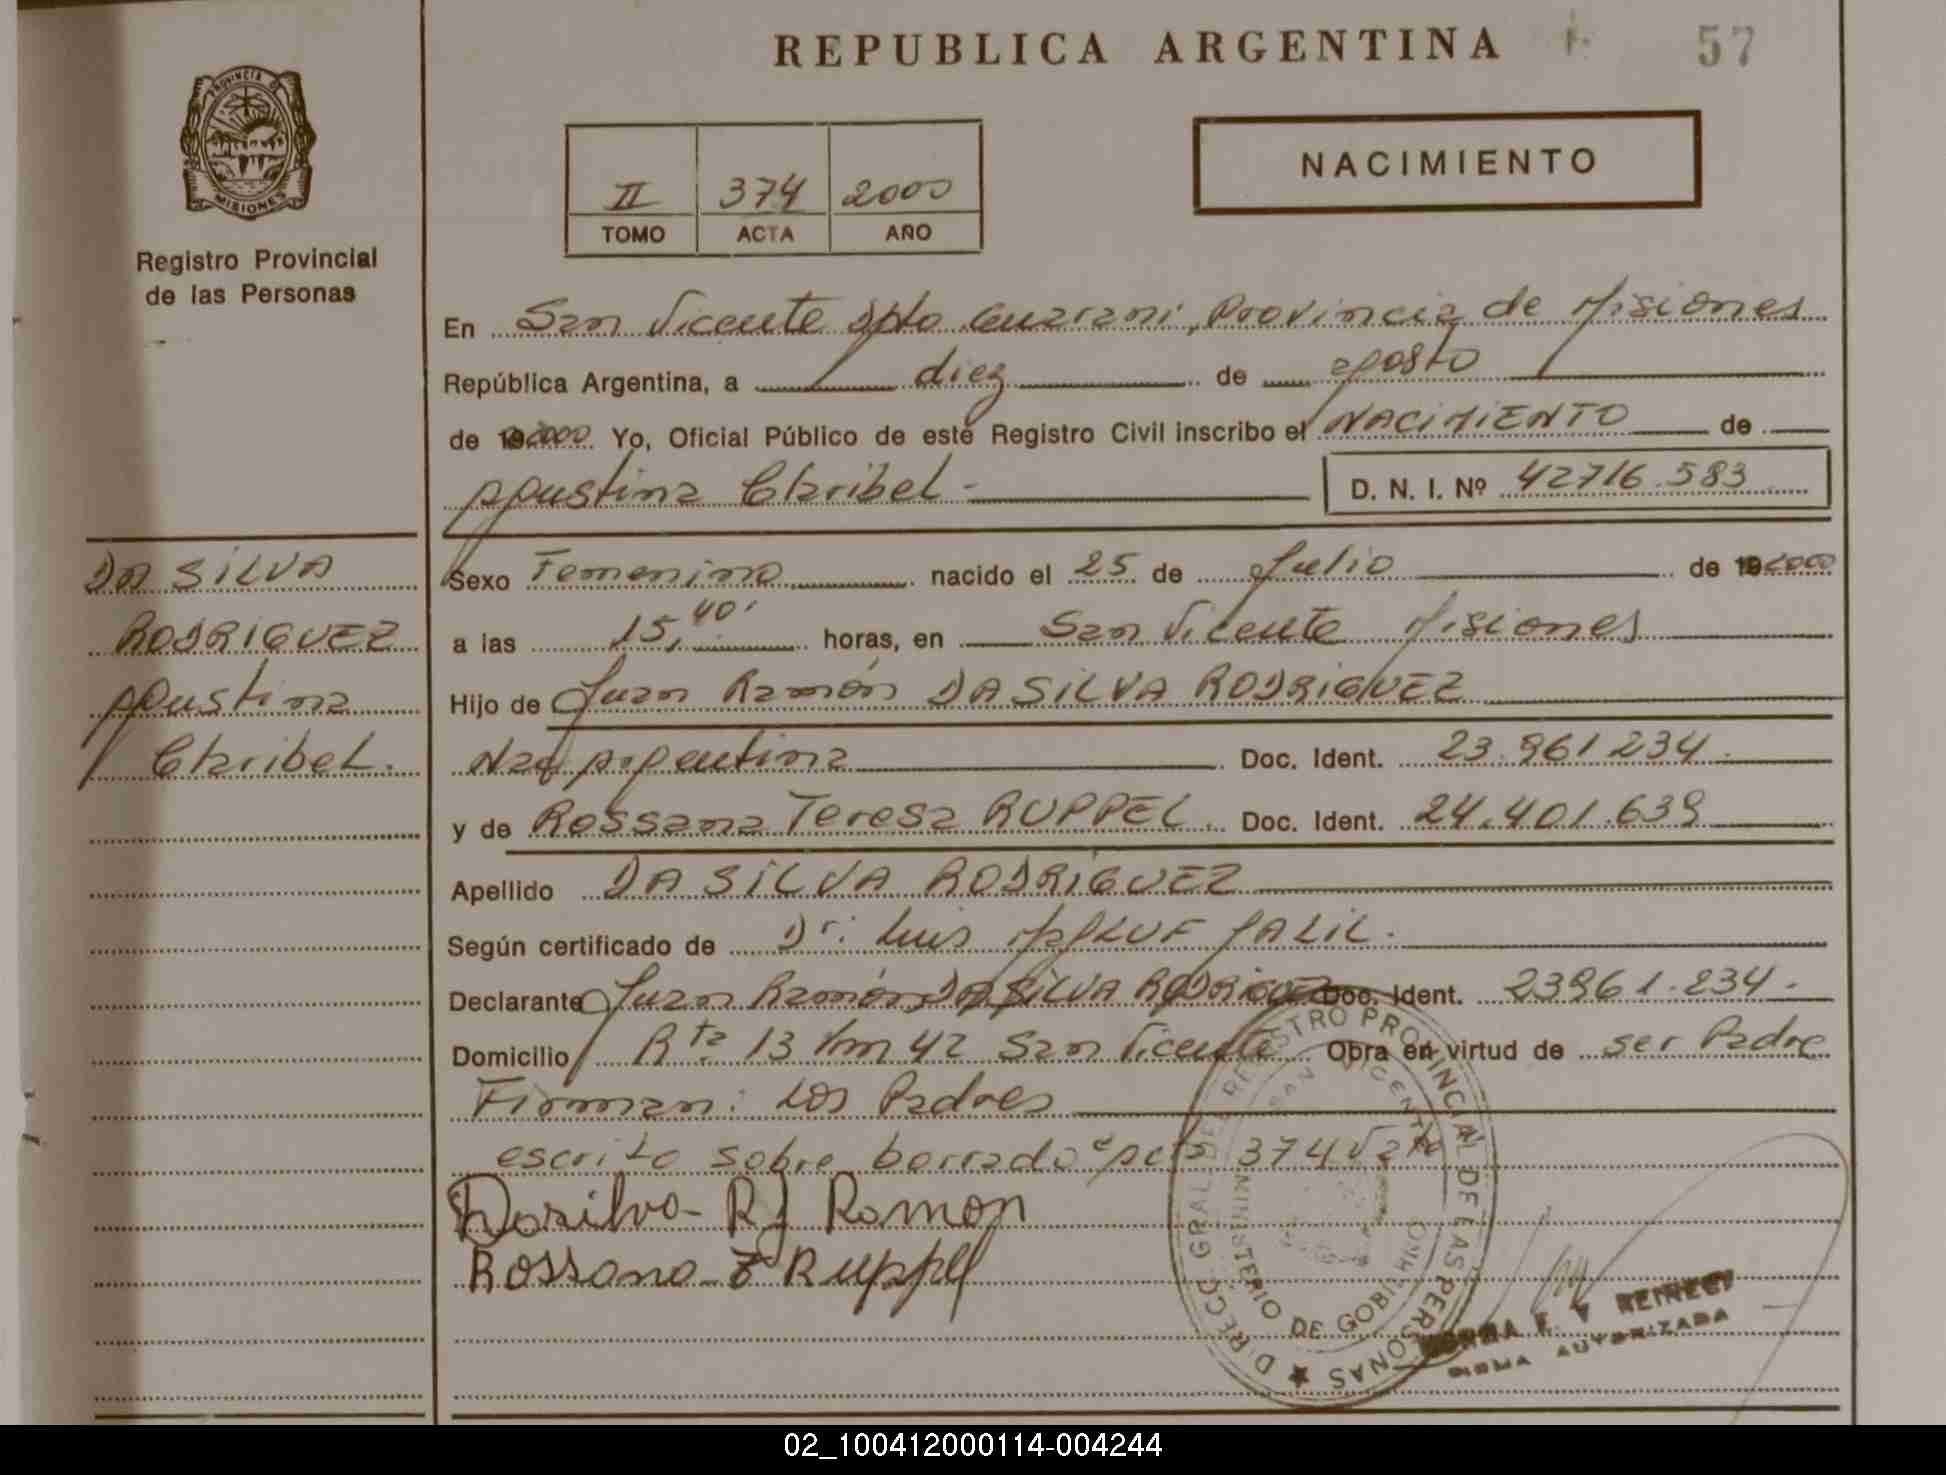 REPUBLICA ARGENTINA
57
PROVINCIA DE
MISIONES
Registro Provincial
de las Personas
II 374 2000
TOMO ACTA AÑO
NACIMIENTO
En San Vicente Dpto Guarani, Provincia de Misiones
República Argentina, a diez de agosto
de 19 2000 Yo, Oficial Público de este Registro Civil inscribo el NACIMIENTO de
Agustina Claribel - D. N. I. Nº 42716.583
DA SILVA
RODRIGUEZ
Agustina
Claribel.
Sexo Femenino nacido el 25 de Julio de 19 2000
a las 15,40' horas, en San Vicente Misiones
Hijo de Juan Ramón DA SILVA RODRIGUEZ
Nac Argentina Doc. Ident. 23.961.234.
y de Rossana Teresa RUPPEL. Doc. Ident. 24.401.639
Apellido DA SILVA RODRIGUEZ
Según certificado de Dr. Luis JALIL.
Declarante Juan Ramón DA SILVA RODRIGUEZ Doc. Ident. 23961.234.
Domicilio Rta 13 Km 42 San Vicente Obra en virtud de ser Padre
Firman: Los Padres
escrito sobre borrado 374 Vale
Dasilva- R J Ramon
Rossana T Ruppel
DIRECC. GRAL. DEL REGISTRO PROVINCIAL DE LAS PERSONAS
MINISTERIO DE GOBIERNO
SAN VICENTE
FIRMA AUTORIZADA
02_100412000114-004244